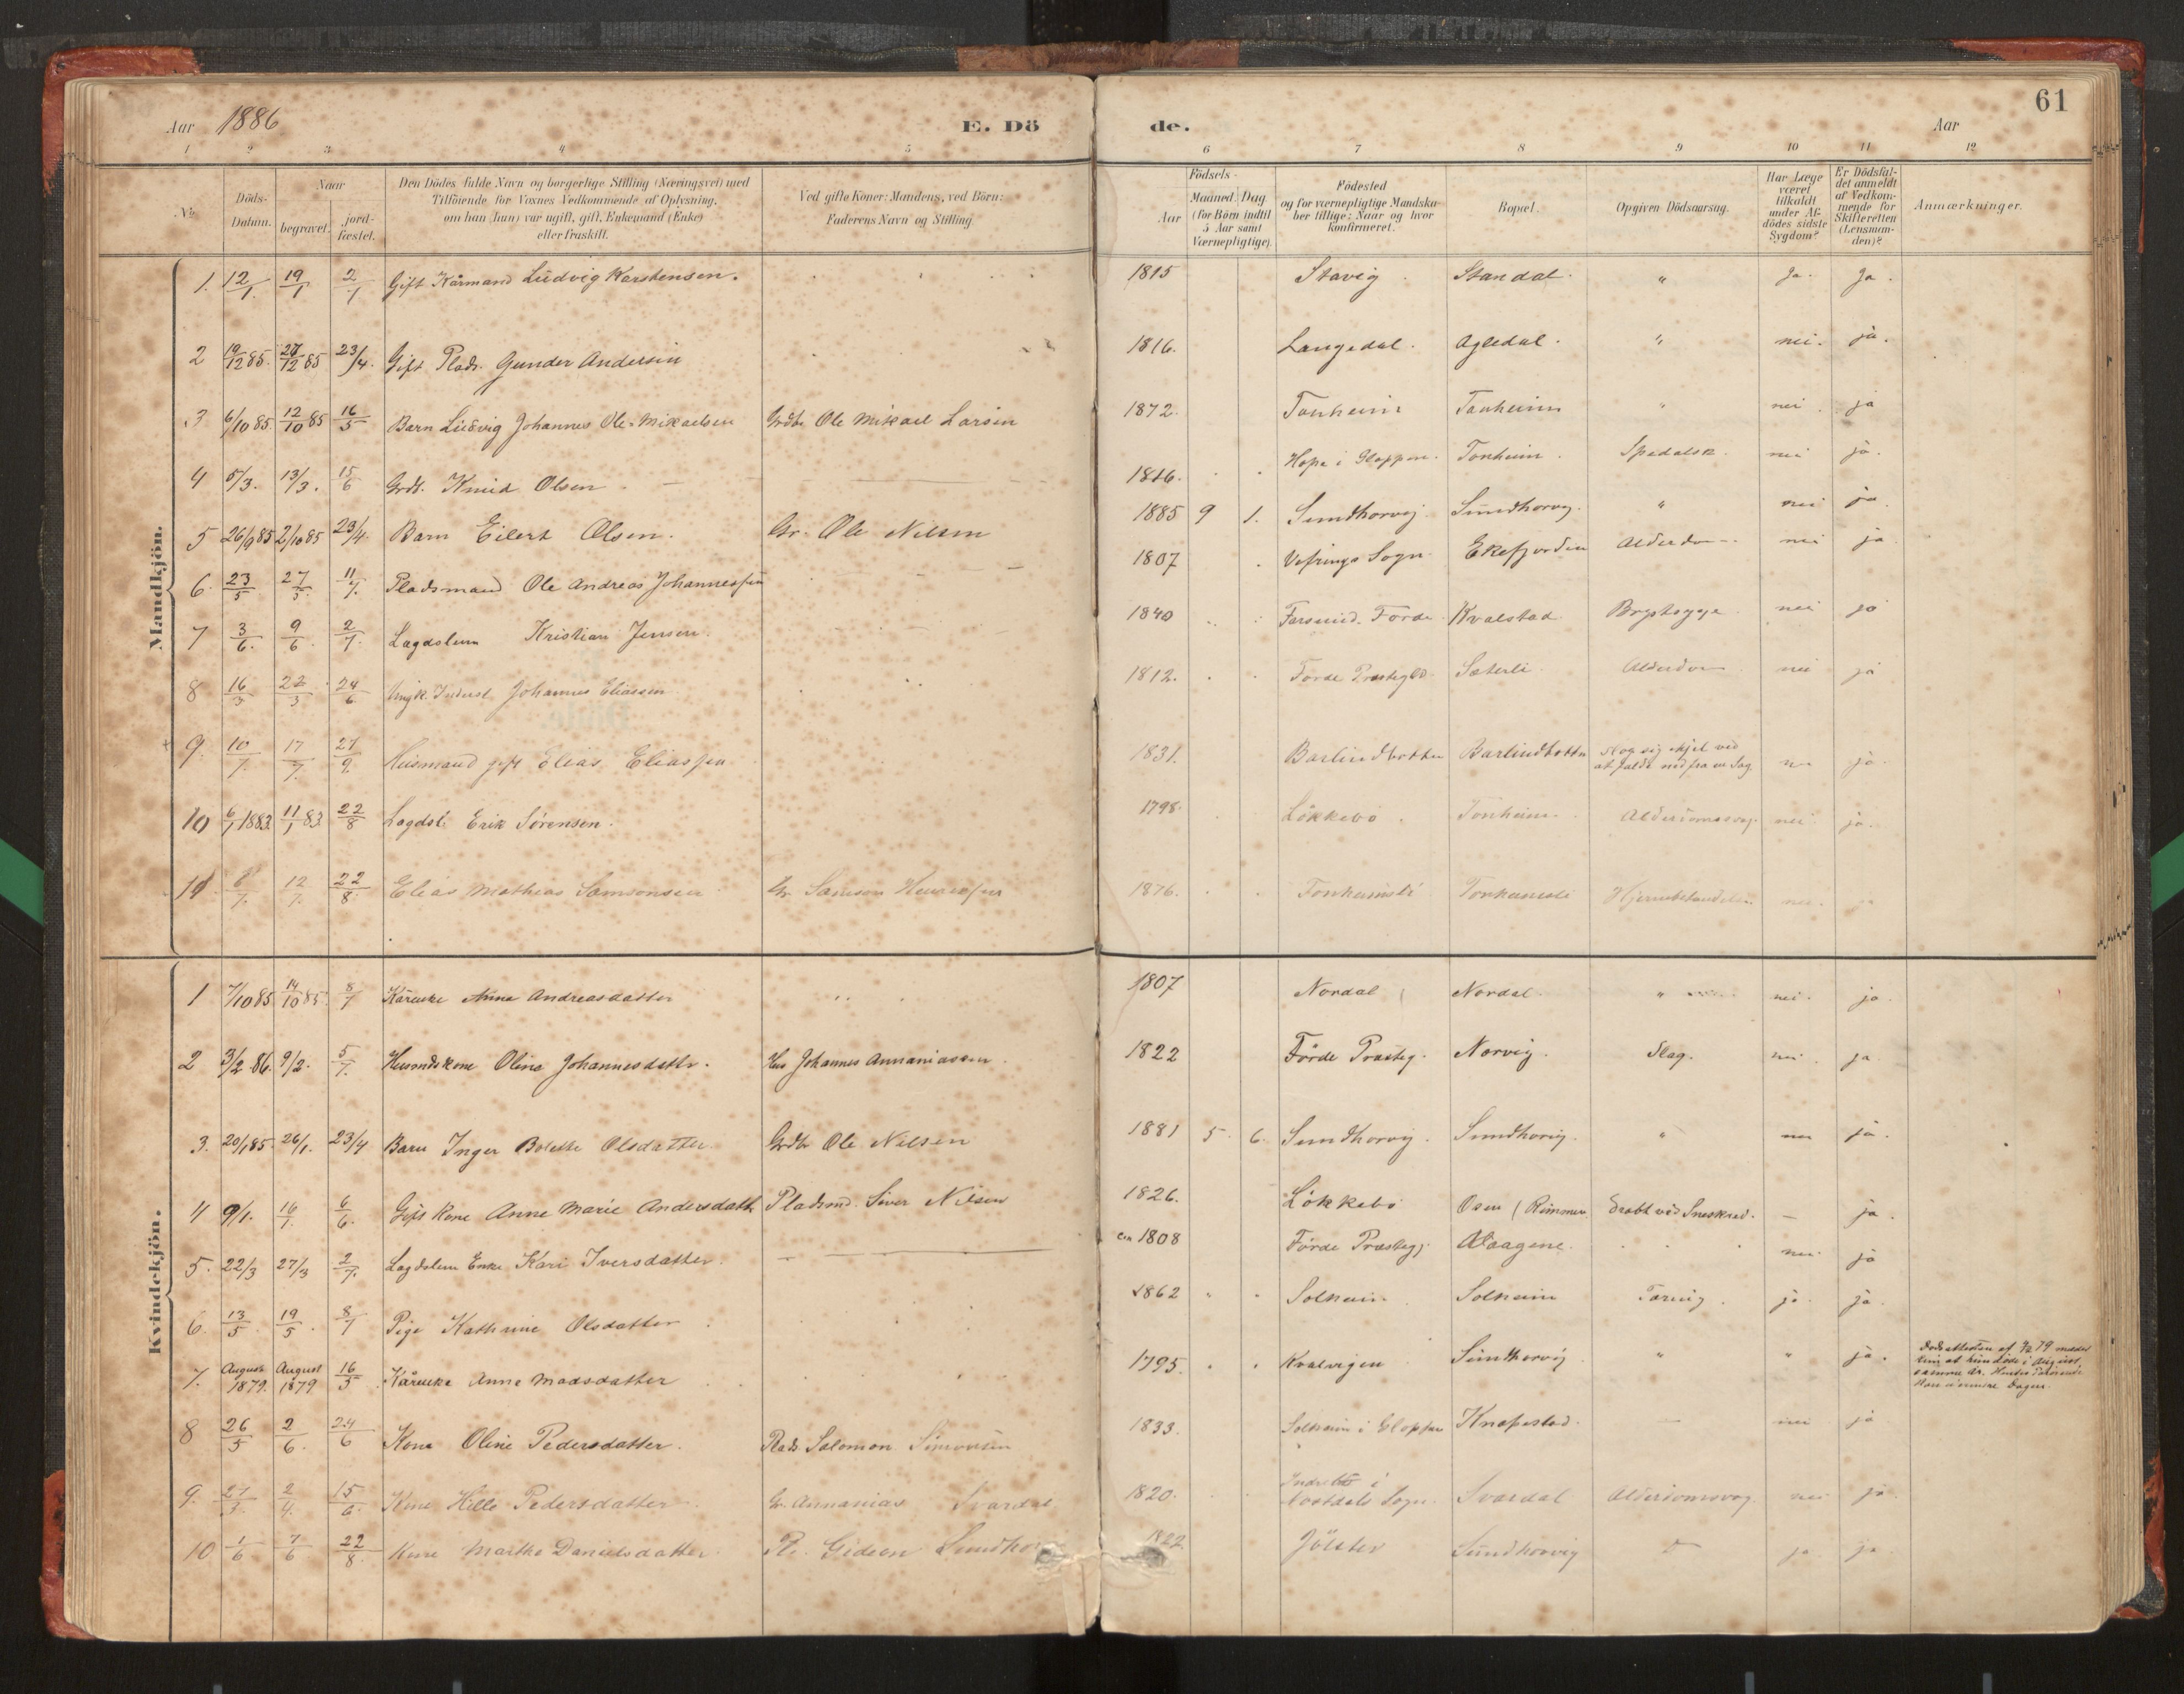 61
Aar 1886 E. Dö de. Aar
1 2 3 4 5 6 7 8 9 10 11 12
No.
Döds-Datum.
Naar
begravet.
jord-fæstet.
Den Dödes fulde Navn og borgerlige Stilling (Næringsvei) med
Tilföiende for Voxnes Vedkommende af Oplysning,
om han (hun) var ugift, gift, Enkemand (Enke)
eller fraskilt.
Ved gifte Koner: Mandens, ved Börn:
Faderens Navn og Stilling.
Födsels-
Aar
Maaned Dag
(for Börn indtil
5 Aar samt
Værnepligtige).
Födested
og for værnepligtige Mandska-
ber tillige: Naar og hvor
konfirmeret.
Bopæl.
Opgiven Dödsaarsag.
Har Læge
været
tilkaldt
under Af-
dödes sidste
Sygdom?
Er Dödsfal-
det anmeldt
af Vedkom-
mende for
Skifteretten
(Lensman-
den)?
Anmærkninger.
Mandkjön.
1. 12/1. 19/1 2/1 Gift Kårmand Ludvig Karstensen. 1815 Stavig Standal. " Ja. Ja.
2 19/12 85. 27/12 85 23/4. Gift Plads. Gunder Andersen 1816. Langedal. Agledal. " nei. ja.
3 6/10 85. 12/10 85 16/5 Barn Ludvig Johannes Ole-Mikaelsen Grdbr. Ole Mikael Larsen 1872. Tonheim Tonheim " nei. ja
4 5/3. 13/3. 15/6 Grdb. Knud Olsen. 1816. Hope i Gloppen. Tonheim. Spedalsk. nei ja.
5 26/9 85 2/10 85 23/4. Barn Eilert Olsen. Gr. Ole Nilsen 1885 9 1. Sundhorvig. Sundhorvig. " nei ja
6. 23/5 27/5. 11/7. Pladsmand Ole Andreas Johannessen 1807 Vefrings Sogn Ekefjorden Alderdom nei ja
7 3/6. 9/6. 2/7. Lagdslem Kristian Jensen. 1840 Førde Kvalstad Brystsyge. nei ja
8 16/3 22/3 24/6 Inderst Johannes Eliassen 1812. Førde Præstegld. Sæterli. Alderdom nei ja
9. 10/7. 17/7. 27/9. Husmand gift Elias Eliassen 1831. Barlindbotten Barlindbotten Slog sig ihjel ved
at falde ned fra en Sag. nei ja.
10 6/1 1883 11/1 83 22/8 Lagdsl. Erik Sørensen. 1798. Løkkebø. Tonheim. Alderdomssvag. nei. ja.
11 6/7. 12/7. 22/8. Elias Mathias Samsonsen Gr. Samson 1876. Tonheimsli Tonheimsli nei.
Kvindekjön.
1 7/10 85 14/10 85. 8/7 Kårenke Anne Andreasdatter 1807 Nordal Nordal. " nei. ja.
2 3/2 86. 9/2. 5/7. Husmdskone Oline Johannesdattr. Hus Johannes Annaniassen. 1822 Førde Præsteg. Norvig. Slag. nei. ja
3. 20/1 85. 26/1. 23/4 Barn Inger Bolette Olsdatter. Grdbr Ole Nilsen 1881 5. 6. Sundhorvig. Sundhorvig. " nei ja.
4 9/1. 16/1. 6/6. Gift Kone Anne Marie Andersdatt. Pladsmd. Siver Nilsen 1826. Løkkebø Osen (Rimmen. Dræbt ved Sneskred. — ja.
5. 22/3 27/3 2/7. Lagdslem Enke Kari Iversdatter. ca 1808 Førde Præstegj. Aaagene. nei. ja
6. 13/5 19/5. 8/7 Pige Kathrine Olsdatter 1862 Solheim. Solheim Tæring. ja. ja.
7. August 1879. August 1879 16/5 Kårenke Anne Madsdatter 1795. Kvalvigen Sundhorvig " " ja. Dødsattesten af 79
at hun døde i August
samme år.
8 26/5 2/6. 24/6 Kone Oline Pedersdatter. Plads. Salomon Simonsen 1833. Solheim i Gloppen Knapestad. — nei ja
9. 27/3. 2/4. 15/6. Kone Hille Pedersdatter. Gr. Annanias Svardal 1820. Indre i
Nostdals Sogn. Svardal Alderdomssvag. nei ja.
10 1/6 7/6 22/8. Kone Marthe Danielsdatter. Pl. Gideon 1822 Jølster Sundhorvig ja ja